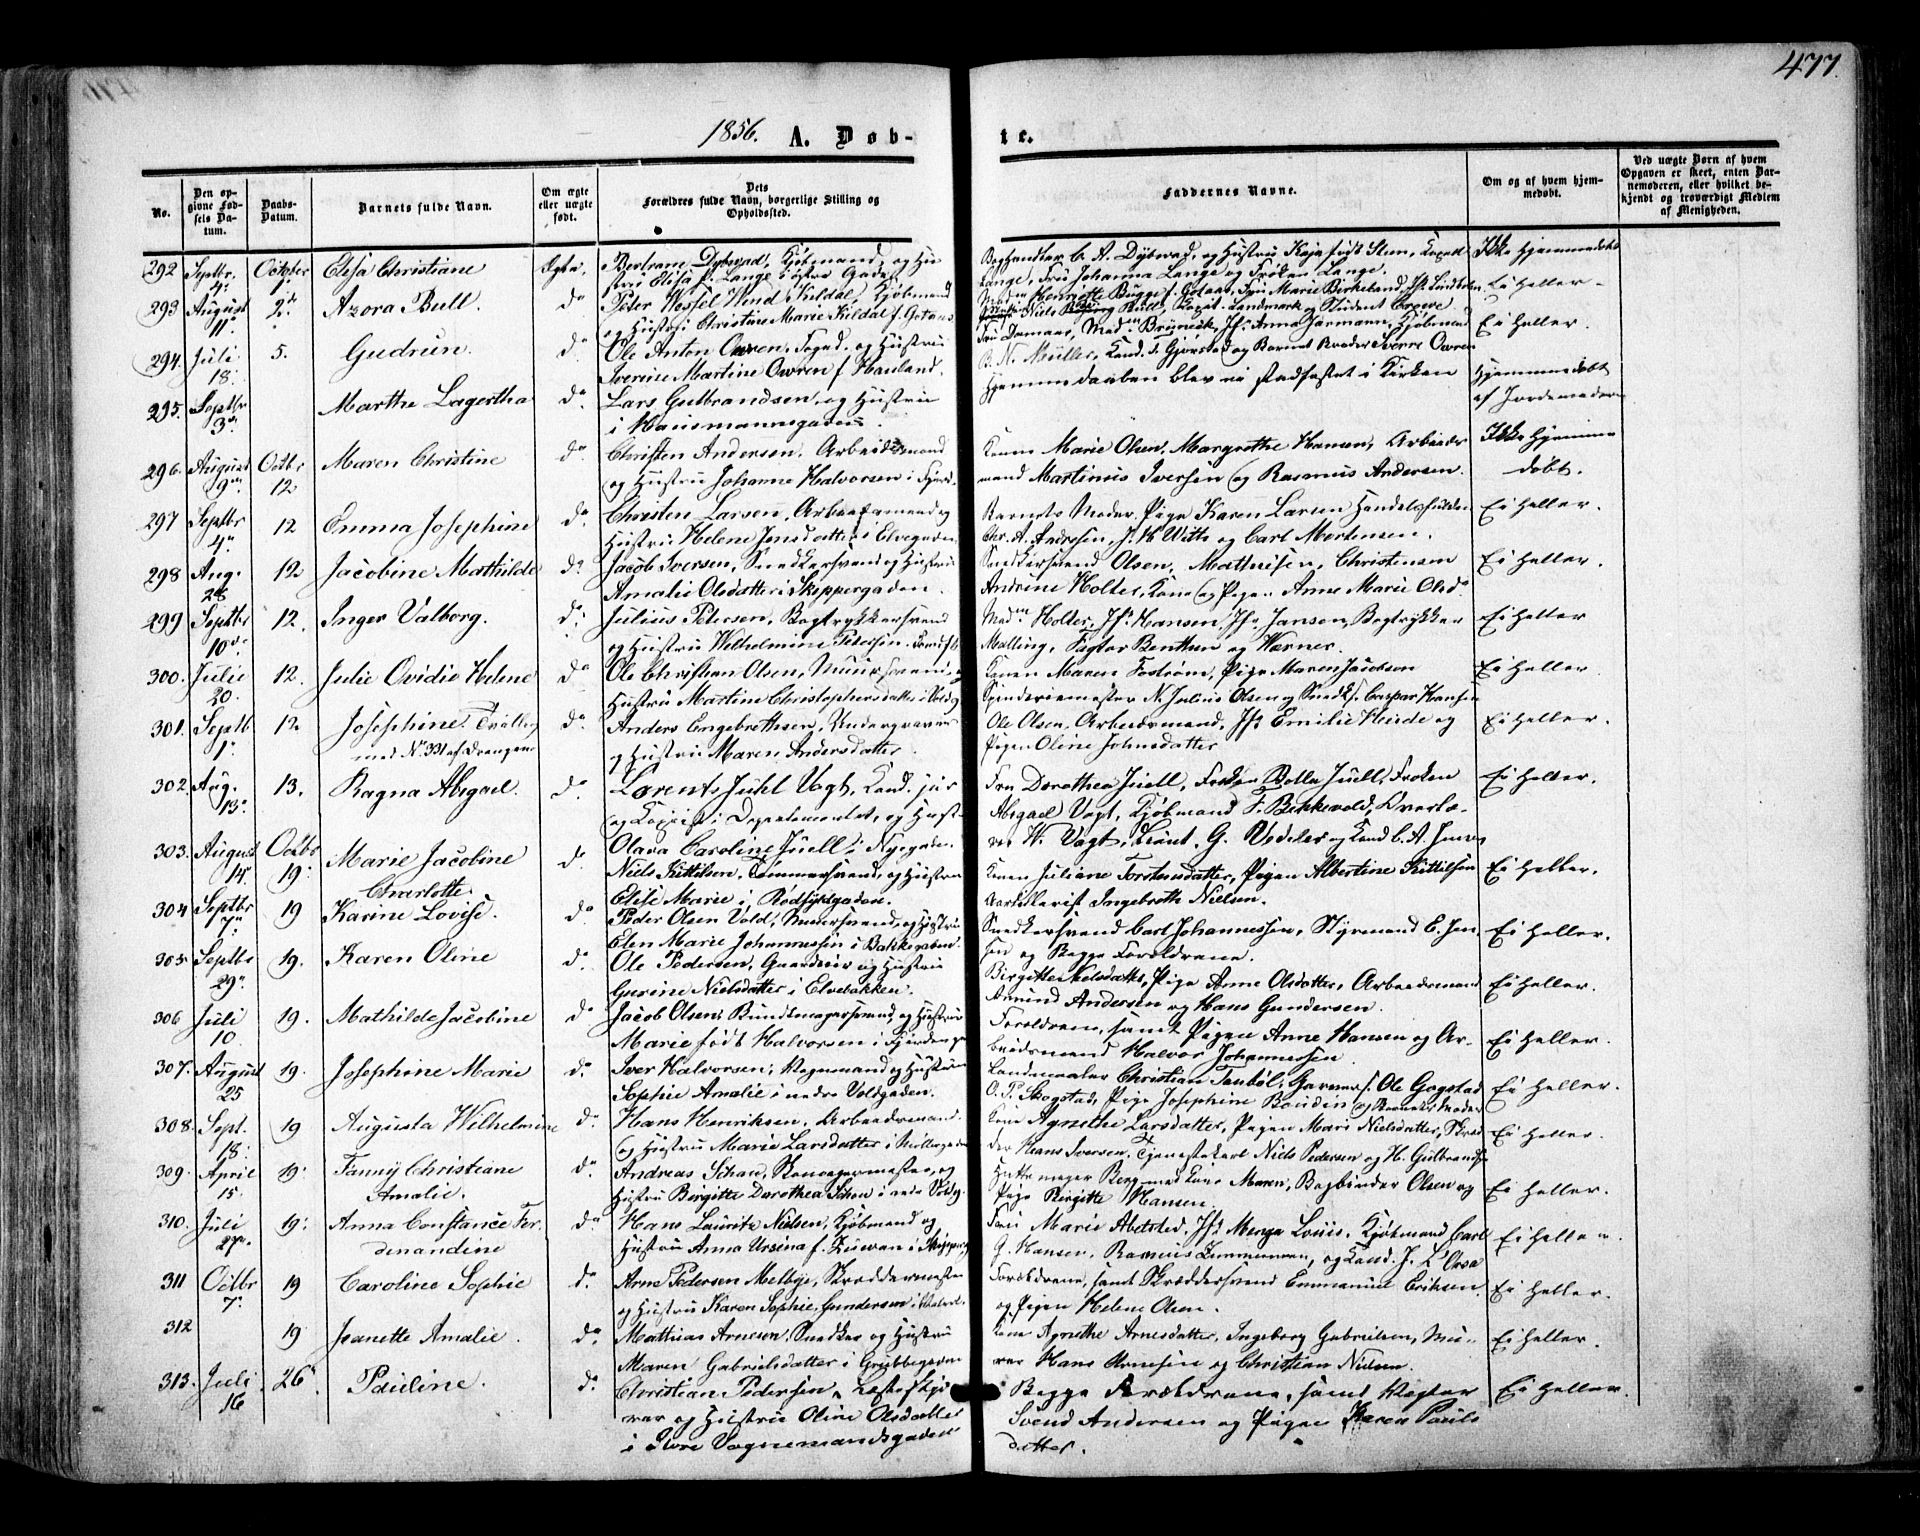 477.
1856. A. Døb-
te.
No.
Den opgivne Fødsels Datum.
Daabs-Datum.
Barnets fulde Navn.
Om ægte eller uægte født.
Dets Forældres fulde Navn, borgerlige Stilling og Opholdssted.
Faddernes Navne.
Om og af hvem hjemmedøbt.
Ved uægte Børn af hvem Opgaven er skeet, enten Barnemoderen, eller hvilket bekjendt og troværdigt Medlem af Menigheden.
292 Septbr 4. October 1. Elisa Christiane Ægte.
Bertrane Dybwad, Kjøbmand, og Hu
stru Elisa f. Lange i østre Gade
Boghandler C. A. Dybwad, og Hustru Kaja født Steen,
Lange, Fru Johanna Lange og Frøken Lange.
Ikke Hjemmedøbt
293 August 11. 2. Azora Bull do
Peder Wessel Wind Kildal, Kjøbmand
og Hustru Christine Marie Kildal f. Gotaas
Mad. Henriette Bugge f. Gotaas, Fru Marie Birkelund,
Niels Bull, Landmark og Student Greve
Ei Heller
294. Juli 18. 5. Gudrun. do
Ole Anton Owren, Foged, og Hustru
Iverine Martine Owren f. Hauland.
Jfr Anna Jarmann, Kjøbmand
B. N. Müller, Kand. T. Gjørstad og Barnets Broder Sverre Owren
Ei Heller
295. Septbr 3. Marthe Lagertha do
Lars Gulbrandsen og Hustru
i Hausmannsgaden.
Hjemmedaaben blev ei stadfæstet i Kirken
Hjemmedøbt
af Jordemoderen
296. August 9. Octbr 12 Maren Christine do
Christen Andersen, Arbeidsmand
og Hustru Johanne Halvorsen i Fjerd.
Konen Marie Olsen, Margrethe Hansen, Arbeids
mand Martinus Iversen og Rasmus Andersen.
Ikke Hjemme
døbt.
297 Septbr 4. 12 Emma Josephine do
Christen Larsen, Arbeidsmand og
Hustru Helene Jensdatter i Elvegaden
Barnets Moder, Pige Karen Larsen Handelsfuldm
Chr. A. Andresen, J. H. Witte og Carl Mortensen.
Ei Heller.
298 Aug. 28 12 Jacobine Mathilde do
Jacob Iversen, Snedkersvend og Hustru
Amalie Olsdatter i Skippergaden.
Snedkersvend Olsen, Mathisen, Christensen
Andrine Holter, Kone og Pigen Anne Marie Olsd.
Ei Heller.
299 Septbr 10. 12. Inger Valborg. do
Julius Petersen, Bogtrykkersvend
og Hustru Wilhelmine Petersen
Mad. Holter, Jfr Hansen, Jfr Jansen, Bogtrykker
Malling, Fagtor Benthun og Wærner.
Ei Heller
300. Julie 20. 12. Julie Ovidie Helene do
Ole Christian Olsen, Muursvend, og
Hustru Martine Christophersdatter i Voldg
Konen Maren Fostrøm, Pige Maren Jacobsen
Spinderiemester N. Julius Olsen og Snedk. Caspar Hansen
Ei Heller
301. Septb 1. 12 Josephine Tvilling
med No 331 af Drengene do
Anders Engebrethsen,
og Hustru Maren Andersdatter.
Ole Olsen, Arbeidsmand, Jfr Emilie Heide og
Pigen Oline Johnsdatter
Ei Heller.
302. Aug. 13. 13. Ragna Abigael. do.
Lorents Juhl Vogt, Kand. jur
og Kopist i Departementet, og Hust-
Olava Caroline Juell i Nygade.
Fru Dorothea Juell, Frøken Bolla Juell, Frøken
Abigael Vogt, Kjøbmand F. Bekkevold, Overlæ-
rer W. Vogt, Lieut. G. Vedeler og Kand C. A. Jensen
Ei Heller.
303. August 14. Octbr 19. Marie Jacobine
Charlotte. do
Niels Kittilsen, Tømmersvend, og Hustru
Elise Marie i Rødfyldgaden.
Konen Juliane Torstensdatter, Pigen Albertine Kittilsen
Artillerist Ingebreth Nielsen.
Ei Heller.
304 Septbr 7. 19 Karine Lovise. do
Peder Olsen Vold, Muursvend, og Hustru
Elen Marie Johannessen i Bakkegaden.
Snedkersvend Carl Johannessen, Styrmand E. Jen
sen og Begge Forældrene.
Ei Heller.
305 Septbr 29. 19. Karen Oline do
Ole Pedersen, Gaardeier og Hustru
Gurine Nielsdatter i Elvebakken.
Birgitte Nelsdatter, Pige Anne Olsdatter, Arbeidsmand
Amund Andersen og Hans Gundersen.
Ei Heller.
306 Juli 10. 19. Mathilde Jacobine do
Jacob Olsen, Bundtmagersvend, og Hustru
Marie født Halvorsen i Fjerdingen
Forældrene, samt Pigen Anne Hansen og Ar-
beidsmand Halvor Johannessen.
Ei Heller.
307. August 25 19. Josephine Marie do
Iver Halvorsen, Vognmand og Hustru
Sophie Amalie i nedre Voldgaden.
Landmaaler Christian Tanbøl, Garvers. Ole Gogstad
O. P. Skogstad, Pige Josephine Boudin og Barnets Moder
Ei Heller.
308. Sept. 18. 19 Augusta Wilhelmine do
Hans Henriksen, Arbeidsmand.
og Hustru Marie Larsdatter i Møllergaden
Kone Agnethe Larsdatter, Pigen Mari Nielsdatter, Skræd
der Hans Iversen, Tjenestekarl Niels Pedersen og H. Gulbrandsen
Ei Heller.
309. April 15. 19. Fanny Christiane
Amalie. do
Andreas Schou, Skomagermester, og
Hustru Birgitte Dorothea Schou i nedre Voldg.
Hattemager Berg med Kone Maren, Bogbinder Olsen og
Pige Birgitte Hansen.
Ei Heller.
310. Juli 27. 19. Anna Constance Fer-
denandine do
Hans Lauritz Nielsen, Kjøbmand og
Hustru Anna Ursina f. i Skipperg
Fru Marie Abelsted, Jfr Menga Louis, Kjøbmand Carl
G. Hansen, Rasmus Zimmermann, og Kand. J. L'Orsa
Ei Heller.
311 Octbr 7. 19 Caroline Sophie do
Arne Pedersen Melbye, Skræddermester
og Hustru Karen Sophie Gundersen
Forældrene, samt Skræddersvend Emmanuel Eriksen
og Pigen Helene Olsen.
Ei Heller.
312 19 Jeanette Amalie. do
Mathias Arnesen, Snedker og Hustru
Maren Gabrielsdatter i Grubbegaden
Kone Agnethe Arnesdatter, Ingeborg Gabrielsen, Mu-
rer Hans Arnesen og Christian Nielsen.
Ei Heller.
313. Juli 16 26. Pauline. do
Christian Pedersen,
og Hustru Oline Olsdatter
i Store Vognemandsgaden
Begge Forældrene, samt Vægter
Svend Andersen og Pigen Karen Pauls
datter.
Ei Heller.